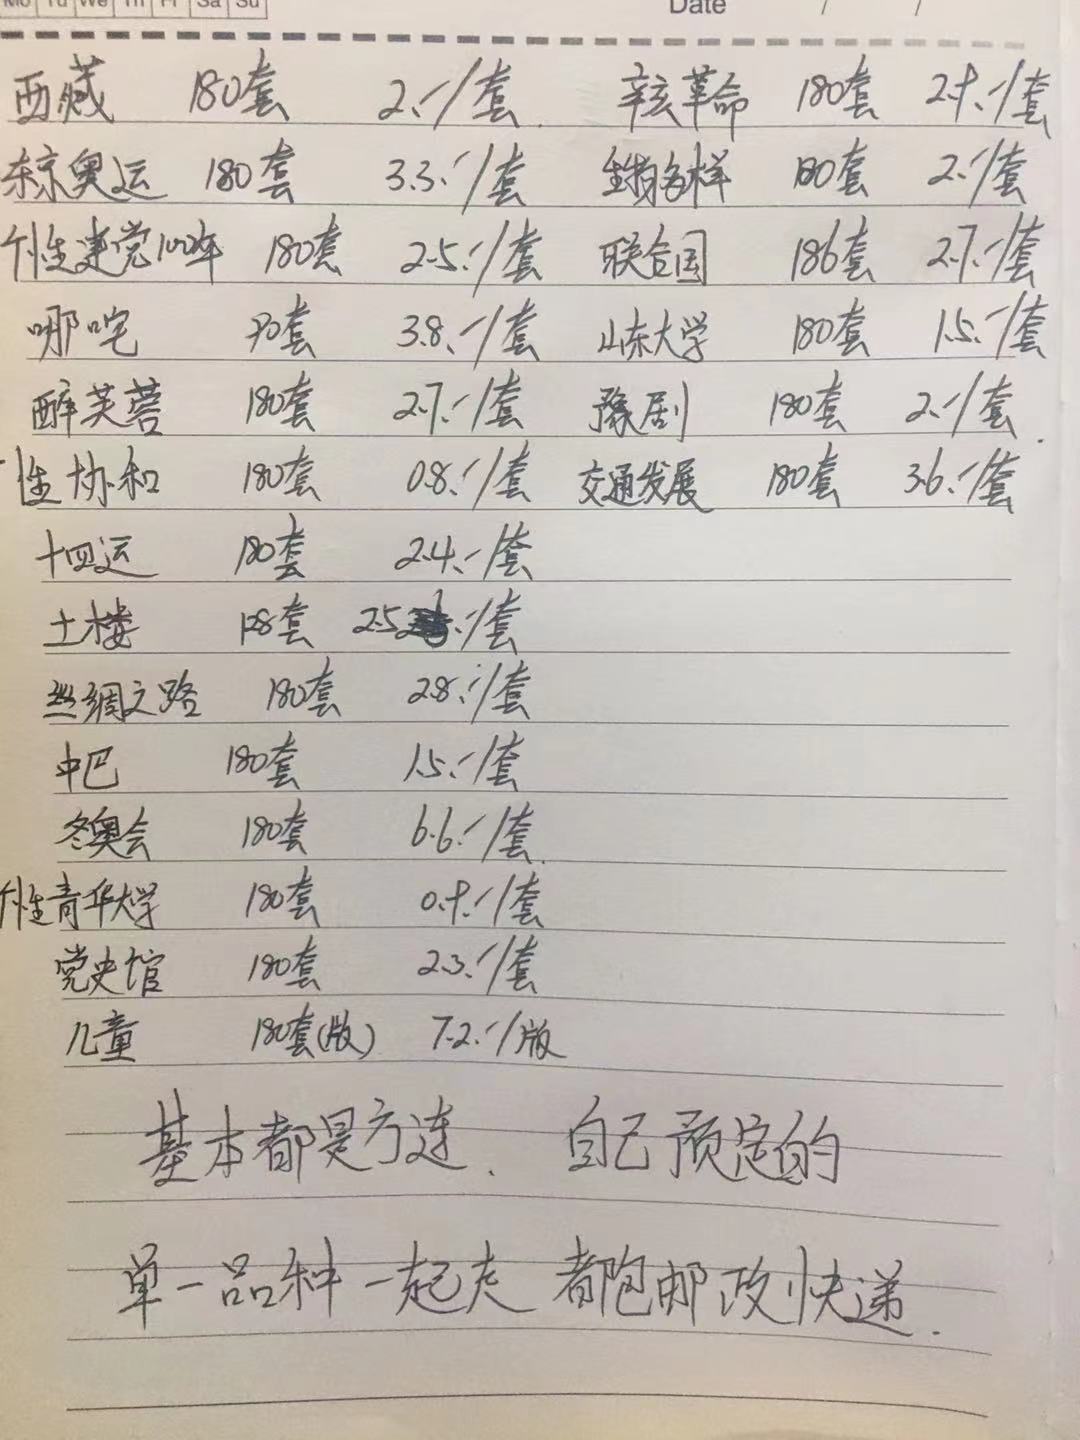 Mo Tu We Th Fr Sa Su Date / /
西藏 180套 2.-/套. 辛亥革命 180套 2.9.-/套
东京奥运 180套 3.3.-/套 生物多样 180套 2.-/套
个性建党100年 180套 2.5.-/套 联合国 186套 2.7.-/套
哪吒 套 3.8.-/套 山东大学 180套 1.5.-/套
醉芙蓉 180套 2.7.-/套 豫剧 180套 2.-/套.
性协和 180套 0.8.-/套 交通发展 180套 3.6.-/套
十四运 180套 2.4.-/套
土楼 128套 2.5.-/套
丝绸之路 180套 2.8.-/套
中巴 180套 1.5.-/套
冬奥会 180套 6.6.-/套.
个性青华大学 180套 0.9.-/套
党史馆 180套 2.3.-/套
儿童 180套(版) 7.2.-/版
基本都是方连、自己预定的
单一品种一起走 都包邮政快递.